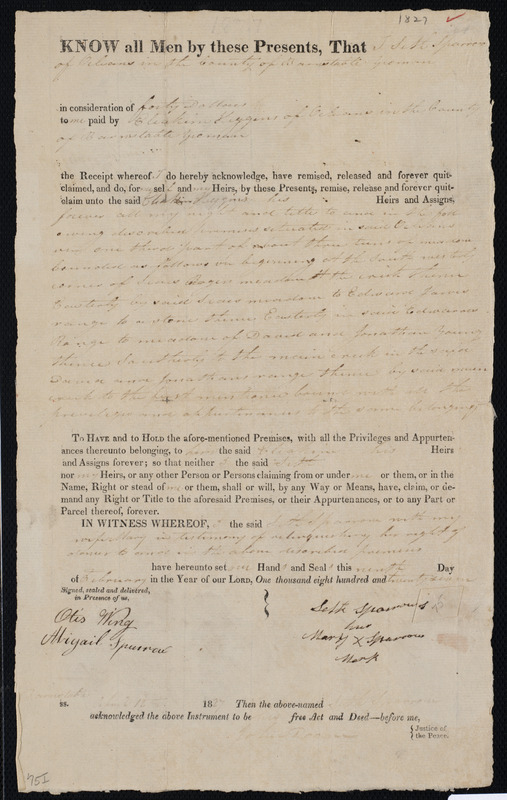 1827
KNOW all Men by these Presents, That I Seth Sparrow
of Orleans in the County of Barnstable yeoman
in consideration of forty Dollars
to me paid by Higgins of Orleans in the County
of Barnstable yeoman
the Receipt whereof I do hereby acknowledge, have remised, released and forever quit-
claimed, and do, for my self and my Heirs, by these Presents, remise, release and forever quit-
claim unto the said Higgins his Heirs and Assigns,
forever all my right and title to and in the foll
owing described premises situated in said Orleans
one third part of about three tuns of meadow
bounded as follows viz beginning at the South westerly
corner of Sears meadow at the creek thence
by said Sears meadow to Edward
range to a stone thence Easterly in said Edwards
Range to meadow of David and Jonathan Young
thence Southerly to the main creek in the said
David and Jonathans range thence by said main
creek to the first mentioned bound with all the
Priveleges and appurtenances to the same belonging
TO HAVE and to HOLD the afore-mentioned Premises, with all the Privileges and Appurten-
ances thereunto belonging, to the said his Heirs
and Assigns forever; so that neither I the said Seth
nor my Heirs, or any other Person or Persons claiming from or under me or them, or in the
Name, Right or Stead of me or them, shall or will, by any Way or Means, have, claim, or de-
mand any Right or Title to the aforesaid Premises, or their Appurtenances, or to any Part or
Parcel thereof, forever.
IN WITNESS WHEREOF, I the said Seth Sparrow with my
wife Mary in testimony of relinquishing her right of
dower to and in the above described premises
have hereunto set our Hands and Seals this ninth Day
of February in the Year of our LORD, One thousand eight hundred and twenty seven
Signed, sealed and delivered,
in Presence of us,
Otis Wing
Abigail Sparrow
Seth Sparrow
her
Mary X Sparrow
Mark
ss. 18 Then the above-named
acknowledged the above Instrument to be free Act and Deed—before me,
Justice of
the Peace.
751